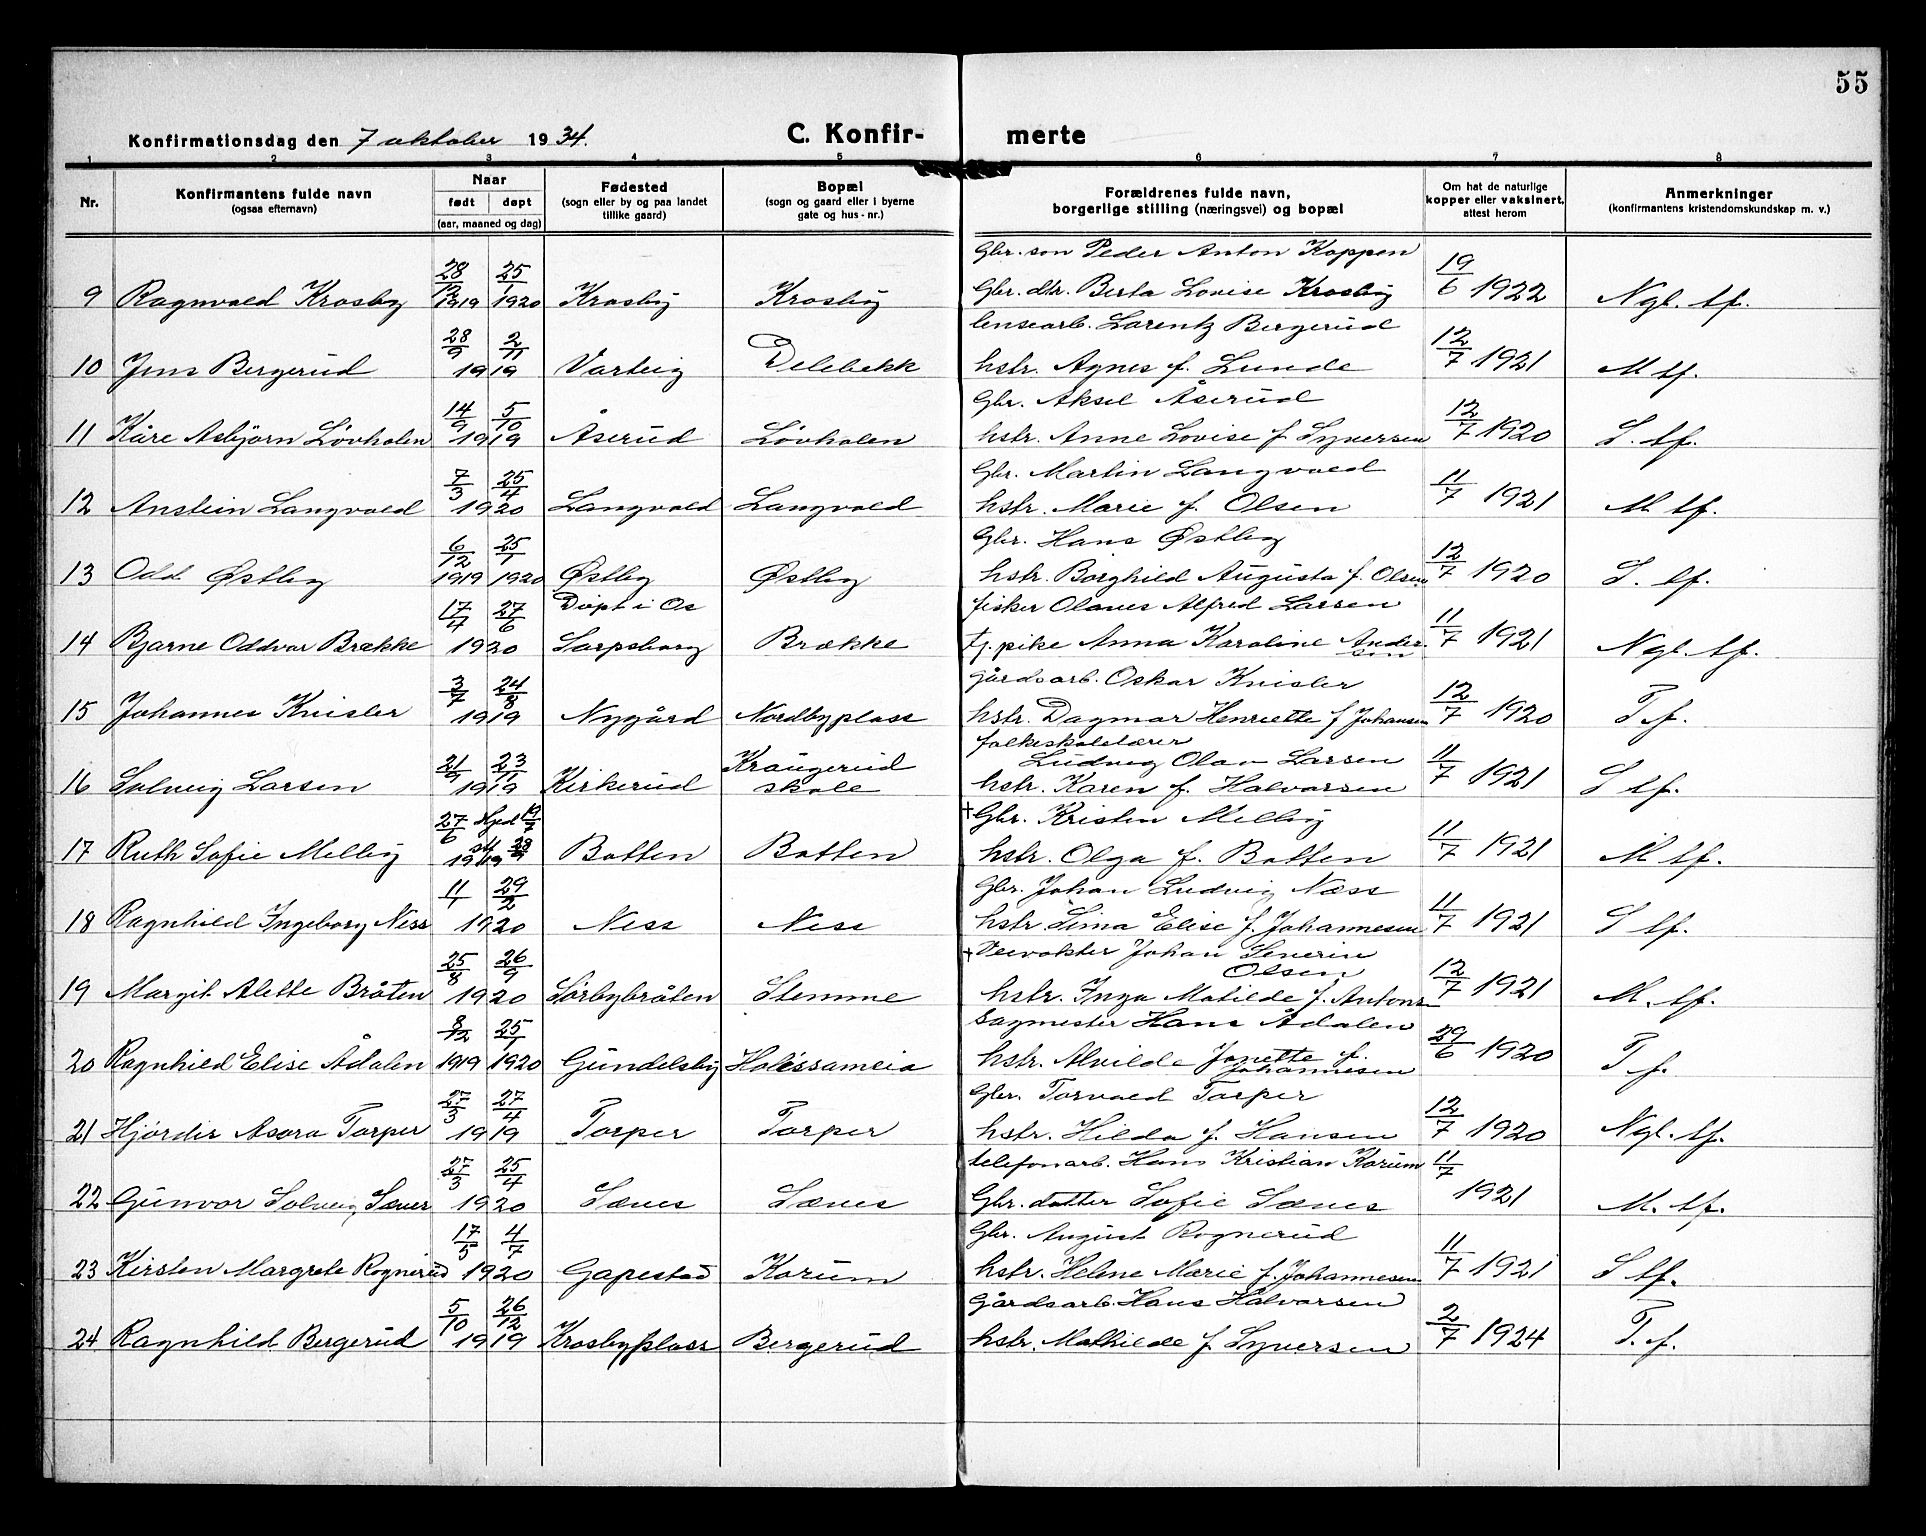 55
Konfirmationsdag den 7 oktober 1934.
C. Konfir- merte
1 2 3 4 5 6 7 8
Nr.
Konfirmantens fulde navn
(ogsaa efternavn)
Naar
født døpt
(aar, maaned og dag)
Fødested
(sogn eller by og paa landet
tillike gaard)
Bopæl
(sogn og gaard eller i byerne
gate og hus-nr.)
Forældrenes fulde navn,
borgerlige stilling (næringsvei) og bopæl
Om hat de naturlige
kopper eller vaksinert,
attest herom
Anmerkninger
(konfirmantens kristendomskundskap m. v.)
Gbr. søn Peder Anton Koppen
9 Ragnvald Krosby 28/12 1919 25/1 1920 Krosby Krosby Gbr. dtr. Berta Lovise Krosby 19/6 1922 Ngl. tf.
lensearb. Lorentz Bergerud
10 Jens Bergerud 28/9 2/11 1919 Varteig Delebekk hstr. Agnes f. Lunde 12/7 1921 M tf.
Gbr. Aksel Åserud
11 Kåre Asbjørn Løvholen 14/9 5/10 1919 Åserud Løvholen hstr. Anne Lovise f. Syversen 12/7 1920 S. tf.
Gbr. Martin Langvold
12 Anstein Langvold 7/3 25/4 1920 Langvold Langvold hstr. Marie f. Olsen 11/7 1921 M tf.
Gbr. Hans Østby
13 Odd Østby 6/12 1919 25/1 1920 Østby Østby hstr. Borghild Augusta f. Olsen 12/7 1920 S. tf.
Døpt i Os fisker Olaves Alfred Larsen
14 Bjarne Oddvar Brække 17/4 27/6 1920 Sarpsborg Brække tj. pike Anna Karoline Andersen 11/7 1921 Ngl. tf.
gårdsarb. Oskar Knisler
15 Johannes Knisler 3/7 24/8 1919 Nygård Nordbyplass hstr. Dagmar Henriette f Johansen 12/7 1920 T f.
folkeskolelærer
Kraugerud Ludvig Olav Larsen
16 Solveig Larsen 21/9 23/11 1919 Kirkerud skole hstr. Karen f. Halvorsen 11/7 1921 S tf.
† Gbr. Kristen Melby
17 Ruth Sofie Melby 27/6 Hjed 13/7 1919 Botten Botten hstr. Olga f. Botten 11/7 1921 M tf.
Gbr. Johan Ludvig Næss
18 Ragnhild Ingeborg Ness 11/1 29/2 1920 Ness Ness hstr Sima Elise f. Johannesen 11/7 1921 S tf.
† Veivokter Johan Severin
Olsen
19 Margit Alette Bråten 25/8 26/9 1920 Sørbybråten Stemme hstr. Inga Matilde f. Antons 12/7 1921 M. tf.
Sagmester Hans Ådalen
20 Ragnhild Elise Ådalen 8/12 1919 25/1 1920 Gundelsby hstr. Alvilde Jonette f. Johannesen 29/6 1920 T f.
Gbr. Torvald Torper
21 Hjørdis Asora Torper 27/3 27/4 1919 Torper Torper hstr. Hilda f. Hansen 12/7 1920 Ngl. tf.
telefonarb. Hans Kristian Korum
22 Gunvor Solveig Sæves 27/3 25/4 1920 Sæves Sæves Gbr. datter Sofie Sæves 11/7 1921 M. tf.
Gbr. August Rognerud
23 Kirsten Margrete Rognerud 17/5 4/7 1920 Gapestad Korum hstr. Helene Marie f. Johannesen 11/7 1921 S tf.
Gårdsarb. Hans Halvorsen
24 Ragnhild Bergerud 5/10 26/12 1919 Krosbyplass Bergerud hstr. Mathilde f Syversen 2/7 1924 T. f.